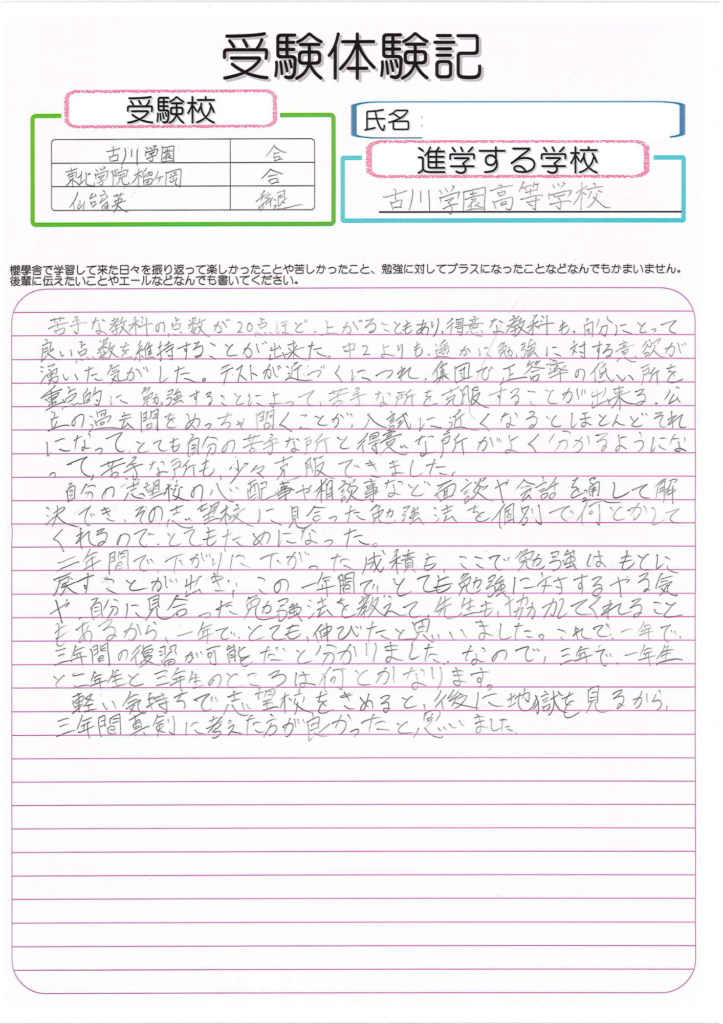 受験体験記
受験校
古川学園 合
東北学院榴ヶ岡 合
仙台育英
氏名:
進学する学校
古川学園高等学校
櫻學舎で学習して来た日々を振り返って楽しかったことや苦しかったこと、勉強に対してプラスになったことなどなんでもかまいません。
後輩に伝えたいことやエールなどなんでも書いてください。
苦手な教科の点数が20点ほど、上がることもあり、得意な教科も、自分にとって
良い点数を維持することが出来た。中2よりも、遥かに勉強に対する意欲が
湧いた気がした。テストが近づくにつれ、集団で正答率の低い所を
重点的に勉強することによって、苦手な所を克服することが出来る。公
立の過去問をめっちゃ聞くことが、入試に近くなるとほとんどそれ
になって、とても自分の苦手な所と得意な所がよく分かるようにな
って、苦手な所も、少々克服できました。
自分の志望校の心配事や相談事など面談や会話を通して解
決でき、その志望校に見合った勉強法を個別で何とかして
くれるので、とてもためになった。
二年間で下がりに下がった成績も、ここで勉強はもとに
戻すことが出き、この一年間で、とても勉強に対するやる気
や、自分に見合った勉強法を教えて、先生も協力してくれること
もあるから、一年で、とても伸びたと思いました。これで、一年で、
三年間の復習が可能だと分かりました。なので、三年で一年生
と二年生と三年生のところは何とかなります。
軽い気持ちで志望校をきめると、後に地獄を見るから、
三年間真剣に考えた方が良かったと、思いました